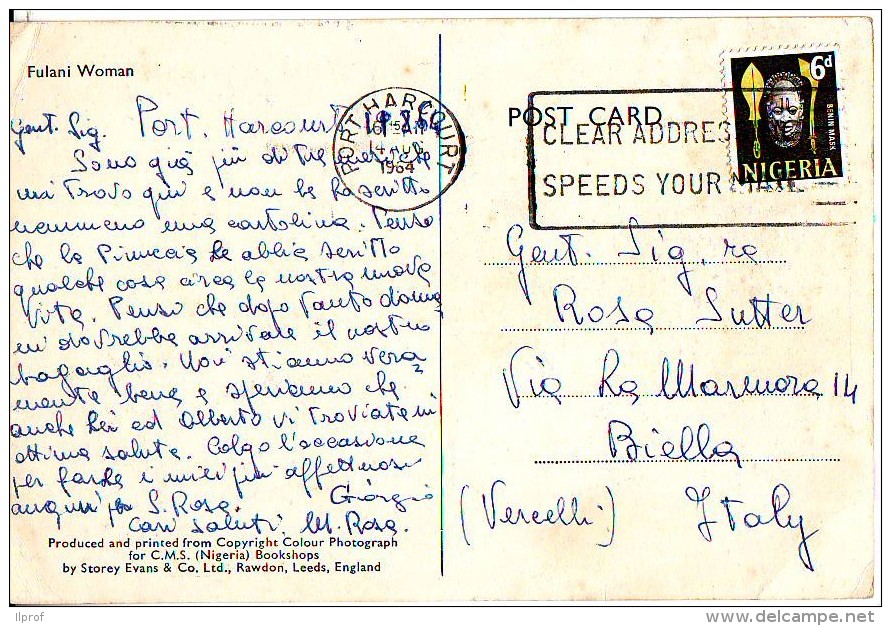 Fulani Woman
Gent. Sig. Port. Harcourt
Sono già più di tre mesi che
mi trovo qui e non ho scritto
nemmeno una cartolina. Penso
che la Pinuccia Le abbia scritto
qualche cosa circa la nostra nuova
vita. Penso che dopo tanto doma
ni dovrebbe arrivare il nostro
bagaglio. Noi stiamo vera
mente bene e speriamo che
anche Lei ed Alberto vi troviate in
ottima salute. Colgo l'occasione
per farLe i miei più affettuosi
auguri per S. Rosa. Giorgio
Cari saluti. M. Rosa.
Produced and printed from Copyright Colour Photograph
for C.M.S. (Nigeria) Bookshops
by Storey Evans & Co. Ltd., Rawdon, Leeds, England
PORT HARCOURT
14 AUG
1964
POST CARD
CLEAR ADDRES
SPEEDS YOUR MAIL
6d
BENIN MASK
NIGERIA
Gent. Sig.ra
Rosa Sutter
Via La Marmora 14
Biella
(Vercelli) Italy
Ilprof
delcampe.net